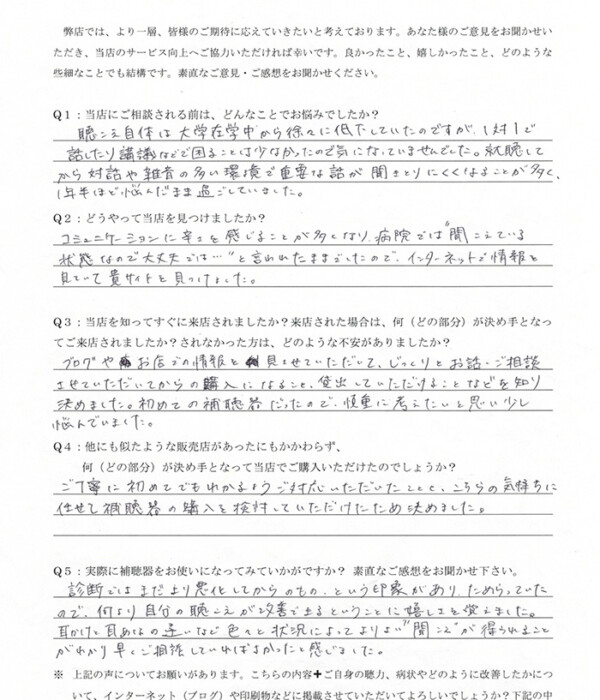 弊店では、より一層、皆様のご期待に応えていきたいと考えております。あなた様のご意見をお聞かせい
ただき、当店のサービス向上へご協力いただければ幸いです。良かったこと、嬉しかったこと、どのような
些細なことでも結構です。素直なご意見・ご感想をお聞かせください。
Q1：当店にご相談される前は、どんなことでお悩みでしたか？
聴こえ自体は大学在学中から徐々に低下していたのですが、1対1で
話したり講義などで困ることは少なかったので気になっていませんでした。就職して
から対話や雑音の多い環境で重要な話が聞きとりにくくなることが多く、
1年半ほど悩んだまま過ごしていました。
Q2：どうやって当店を見つけましたか？
コミュニケーションに辛さを感じることが多くなり、病院では"聞こえている
状態なので大丈夫では…"と言われたままでしたので、インターネットで情報を
見ていて貴サイトを見つけました。
Q3：当店を知ってすぐに来店されましたか？来店された場合は、何（どの部分）が決め手となっ
てご来店されましたか？されなかった方は、どのような不安がありましたか？
ブログやお店での情報を見させていただいて、じっくりとお話・ご相談
させていただいてからの購入になること、貸出していただけることなどを知り
決めました。初めての補聴器だったので、慎重に考えたいと思い少し
悩んでいました。
Q4：他にも似たような販売店があったにもかかわらず、
何（どの部分）が決め手となって当店でご購入いただけたのでしょうか？
ご丁寧に初めてでもわかるようご対応いただいたことと、こちらの気持ちに
任せて補聴器の購入を検討していただけたため決めました。
Q5：実際に補聴器をお使いになってみていかがですか？ 素直なご感想をお聞かせ下さい。
診断ではまだより悪化してからのもの、という印象があり、ためらっていた
ので、何より自分の聴こえが改善できるということに嬉しさを覚えました。
耳かけと耳あなの違いなど色々と状況によってよりよい"聞こえ"が得られること
がわかり早くご相談していればよかったと感じました。
※ 上記の声についてお願いがあります。こちらの内容＋ご自身の聴力、病状やどのように改善したかにつ
いて、インターネット（ブログ）や印刷物などに掲載させていただいてよろしいでしょうか？下記の中